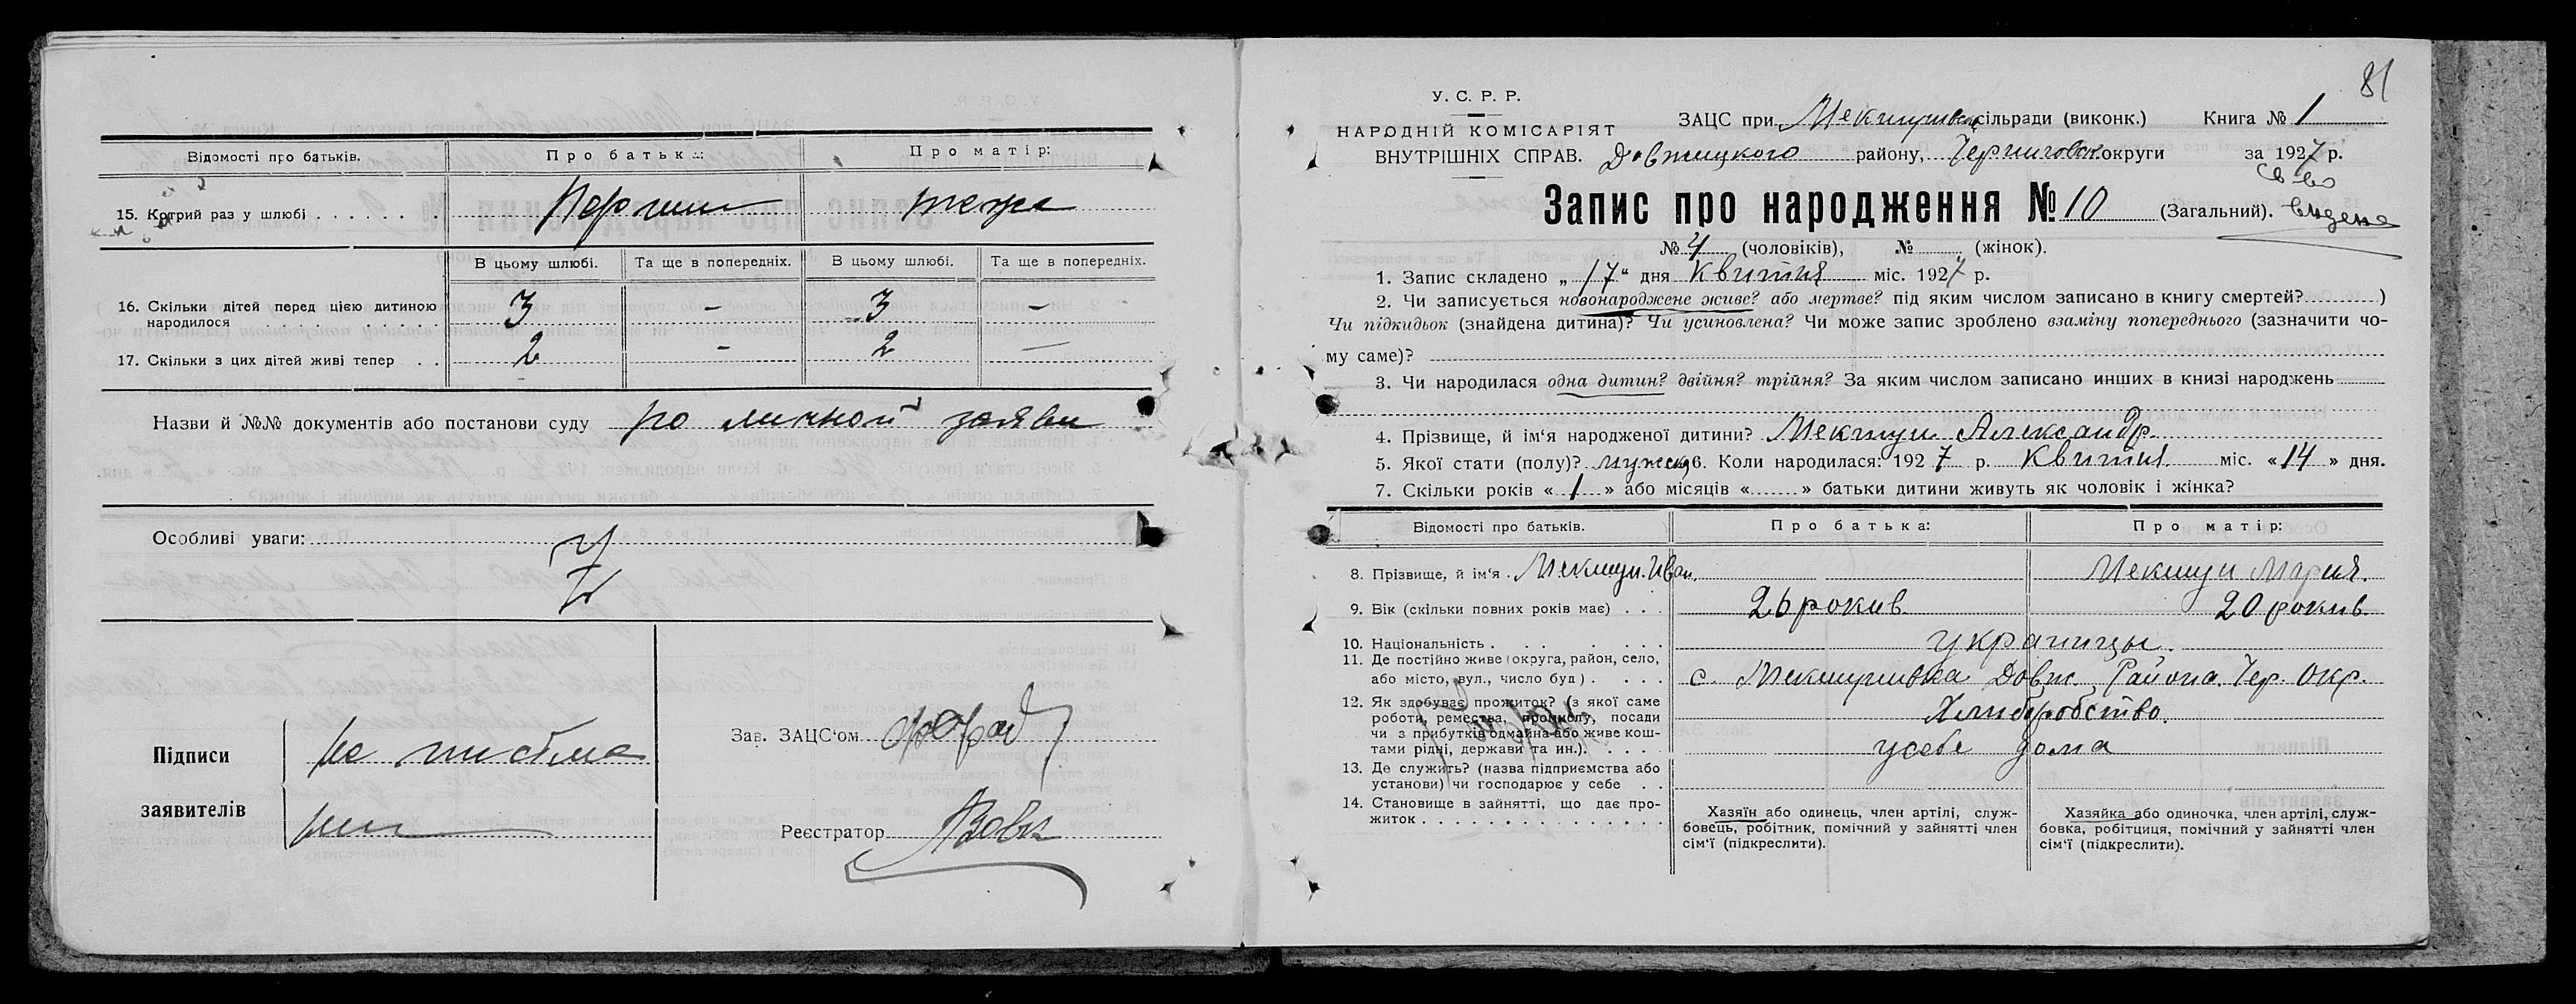 Відомості про батьків. Про батька: Про матір:
15. Котрий раз у шлюбі . . . . . . . Перший теж
В цьому шлюбі. Та ще в попередніх. В цьому шлюбі. Та ще в попередніх.
16. Скільки дітей перед цією дитиною
народилося . . . . . . . . . 3 - 3 -
17. Скільки з цих дітей живі тепер . . 2 - 2 -
Назви й №№ документів або постанови суду по личной заяви
Особливі уваги:
Підписи
заявителів
не письме
Зав. ЗАЦС'ом
Реєстратор Вовк
81
У. С. Р. Р.
НАРОДНІЙ КОМІСАРІЯТ
ВНУТРІШНІХ СПРАВ.
ЗАЦС при Мекшунівск сільради (виконк.) Книга № 1
Довжицкого району, Черниговск округи за 1927 р.
Св-во
видено
Запис про народження № 10 (Загальний).
№ 4 (чоловіків), № (жінок).
1. Запис складено „ 17 “ дня Квитня міс. 1927 р.
2. Чи записується новонароджене живе? або мертве? під яким числом записано в книгу смертей? )
Чи підкидьок (знайдена дитина)? Чи усиновлена? Чи може запис зроблено взаміну попереднього (зазначити чо-
му саме)?
3. Чи народилася одна дитин? двійня? трійня? За яким числом записано инших в книзі народжень
4. Прізвище, й ім'я народженої дитини? Мекшун Александр.
5. Якої стати (полу)? мужеск 6. Коли народилася: 1927 р. Квитня міс. « 14 » дня.
7. Скільки років « 1 » або місяців « » батьки дитини живуть як чоловік і жінка?
Відомості про батьків. Про батька: Про матір:
8. Прізвище, й ім'я . Мекшун. Иван. Мекшун Мария.
9. Вік (скільки повних років має) . . . 26 рокив. 20 рокив.
10. Національність . . . . . . . украинцы.
11. Де постійно живе (округа, район, село,
або місто, вул., число буд) . . . . с. Мекшуновка Довж. Района. Чер. Окр.
12. Як здобуває прожиток? (з якої саме
роботи, ремества, промислу, посади
чи з прибутків одмайна або живе кош-
тами рідні, держави та ин.). . . . . Хлиборобство.
13. Де служить? (назва підприємства або
установи) чи господарює у себе . . у себе дома
14. Становище в зайнятті, що дає про-
житок . . . . . . . . . . . . . .
Хазяїн або одинець, член артілі, служ-
бовець, робітник, помічний у зайнятті член
сім'ї (підкреслити).
Хазяйка або одиночка, член артілі, служ-
бовка, робітциця, помічний у зайнятті член
сім'ї (підкреслити).